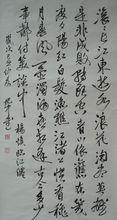 滚滚長江東逝水浪花淘盡英雄
是非成敗轉頭空青山依舊在幾
度夕陽紅白髮漁樵江渚上慣看秋
月春風一壺濁酒喜相逢古今多少
事都付笑談中 楊慎臨江仙